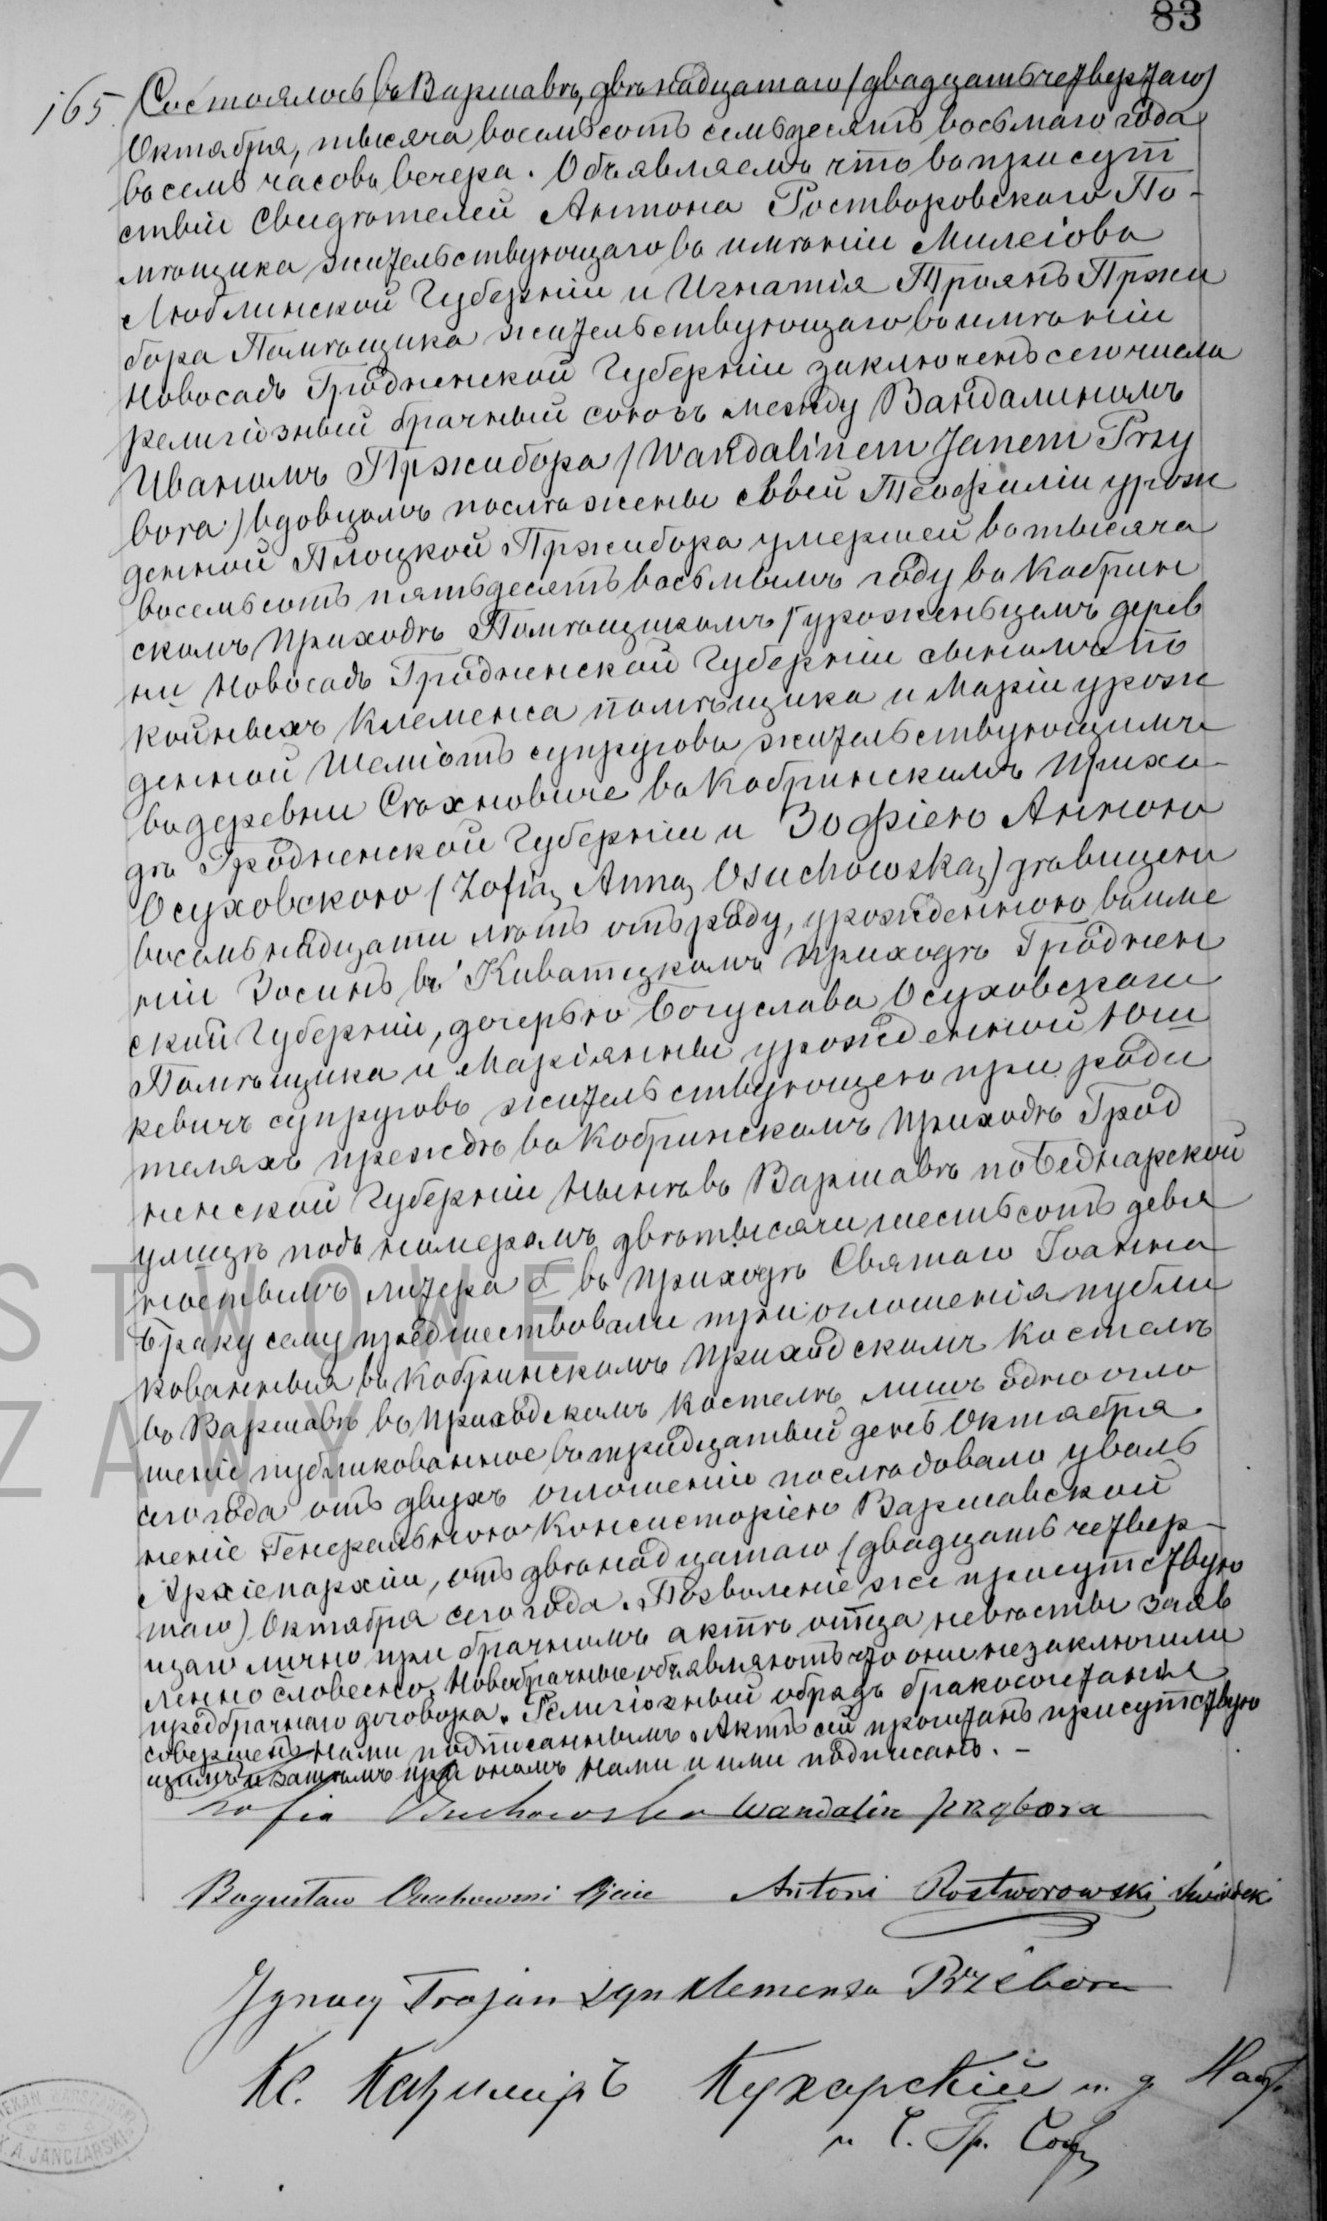 83
165. Состоялось въ Варшавѣ, двѣнадцатаго (двадцать четвертаго)
Октября, тысяча восемьсотъ семьдесятъ восьмаго года
въ семь часовъ вечера. Объявляемъ что въ присут
ствіи Свидѣтелей Антона Ростворовскаго По-
мѣщика жительствующаго въ имѣніи Милеіовъ
Люблинской Губерніи и Игнатія Троянъ Пржи
бора Помѣщика жительствующаго въ имѣніи
Новосадъ Гродненской Губерніи заключенъ сего числа
религіозный брачный союзъ между Вандалиномъ
Иваномъ Пржибора (Wandalinem Janem Przy
bora) вдовцомъ послѣ жены своей Теофиліи урож
денной Плоцкой Пржибора умершей въ тысяча
восемьсотъ пятьдесятъ восьмымъ году въ Кобрин
скомъ приходѣ Помѣщикомъ, уроженьцомъ дерев
ни Новосадъ Гродненской Губерніи сыномъ по
койныхъ Клеменса помѣщика и Маріи урож
денной Шеміотъ супруговъ жительствующимъ
въ деревни Стохновиче въ Кобринскомъ прихо-
дѣ Гродненской Губерніи и Зофіею Анною
Осуховскою (Zofią Anną Osuchowską) дѣвицею
восемьнадцати лѣтъ отъ роду, урожденною въ име
ніи Зосинъ въ Киватицкомъ приходѣ Гроднен
ской Губерніи, дочерью Богуслава Осуховскаго
Помѣщика и Маріянны урожденной Юш
кевичъ супруговъ жительствующею при роди
теляхъ прежде въ Кобринскомъ приходѣ Грод
ненской Губерніи нынѣ въ Варшавѣ по Беднарской
улицѣ подъ номеромъ двѣ тысячи шестьсотъ девя
ностымъ литера б въ приходѣ Святаго Іоанна
Браку сему предшествовали три оглошенія публи
кованныя въ Кобринскомъ Приходскомъ Костелѣ
въ Варшавѣ въ Приходскомъ Костелѣ лишъ одно огло
шеніе публикованное въ тридцатый день Октября
сего года отъ двухъ оглошеніи послѣдовало уволь
неніе Генеральною Консисторіею Варшавской
Архіепархіи, отъ двѣнадцатаго (двадцать четвер-
таго) Октября сего года. Позволеніе же присутствую
щаго лично при брачномъ актѣ отца невѣсты заяв
ленно словесно. Новобрачные объявляютъ что они не заключили
предбрачнаго договора. Религіозный обрядъ бракосочетанія
совершенъ нами подписаннымъ. Актъ сей прочитанъ присутствую
щимъ и затѣмъ при ономъ нами и ими подписанъ. –
Zofia Osuchowska Wandalin Przybora
Bogusław Osuchowski Ojciec Antoni Rostworowski świadek
Ignacy Trojan syn Klemensa Przibora
Кс. Казиміръ Кухарскій и. д. Наст.
и Ч. Гр. Сост
STWOWE
ZAWY
DZIEKAN WARSZAWSKI
X. A. JANCZARSKI